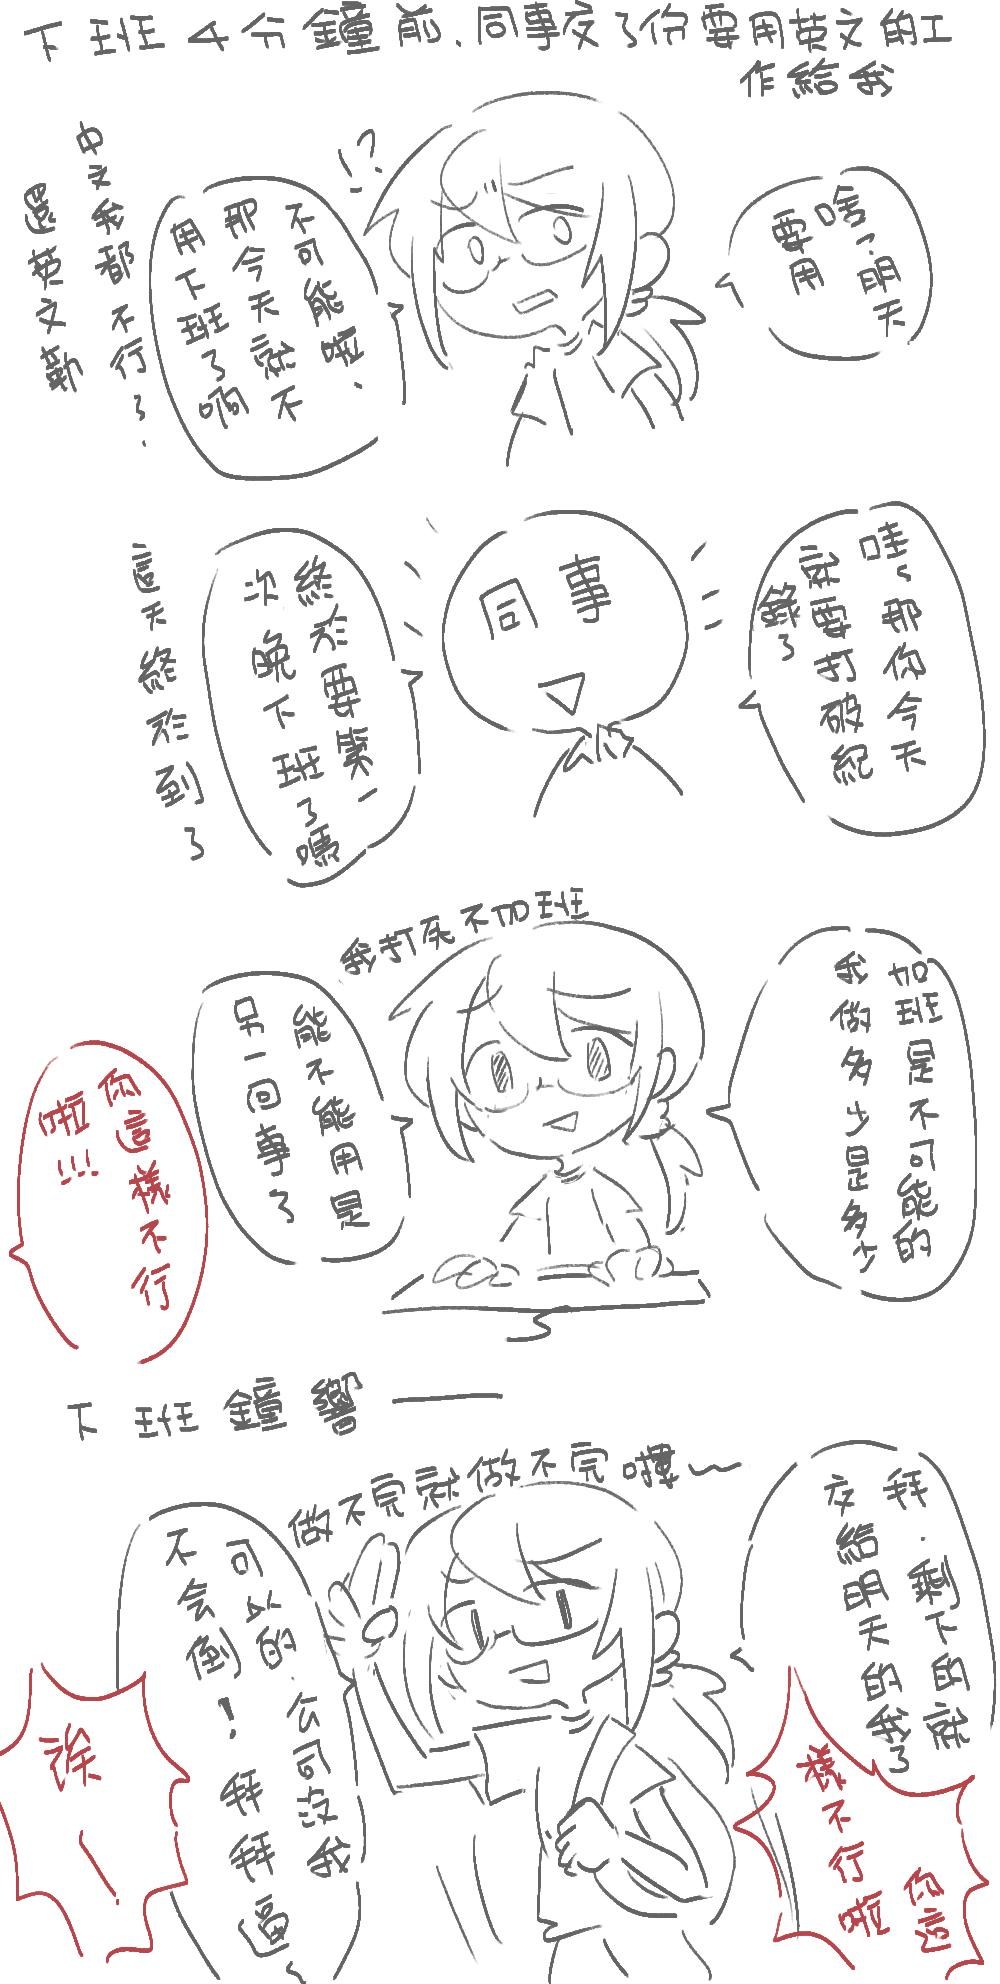 下班4分鐘前、同事交了份要用英文的工
作給我
啥?明天
要用
!?
不可能啦、
那今天就不
用下班了啊
中文我都不行了.
還英文勒
哇~那你今天
就要打破紀
錄了
同事
終於要第一
次晚下班了嗎
這天終於到了
我打死不加班
加班是不可能的
我做多少是多少
能不能用是
另一回事了
你這樣不行
啦!!!
下班鐘響——
做不完就做不完嘍~
拜.剩下的就
交給明天的我了
你這
樣不行啦
可以的.公司沒我
不會倒!拜拜逼~
誒ー